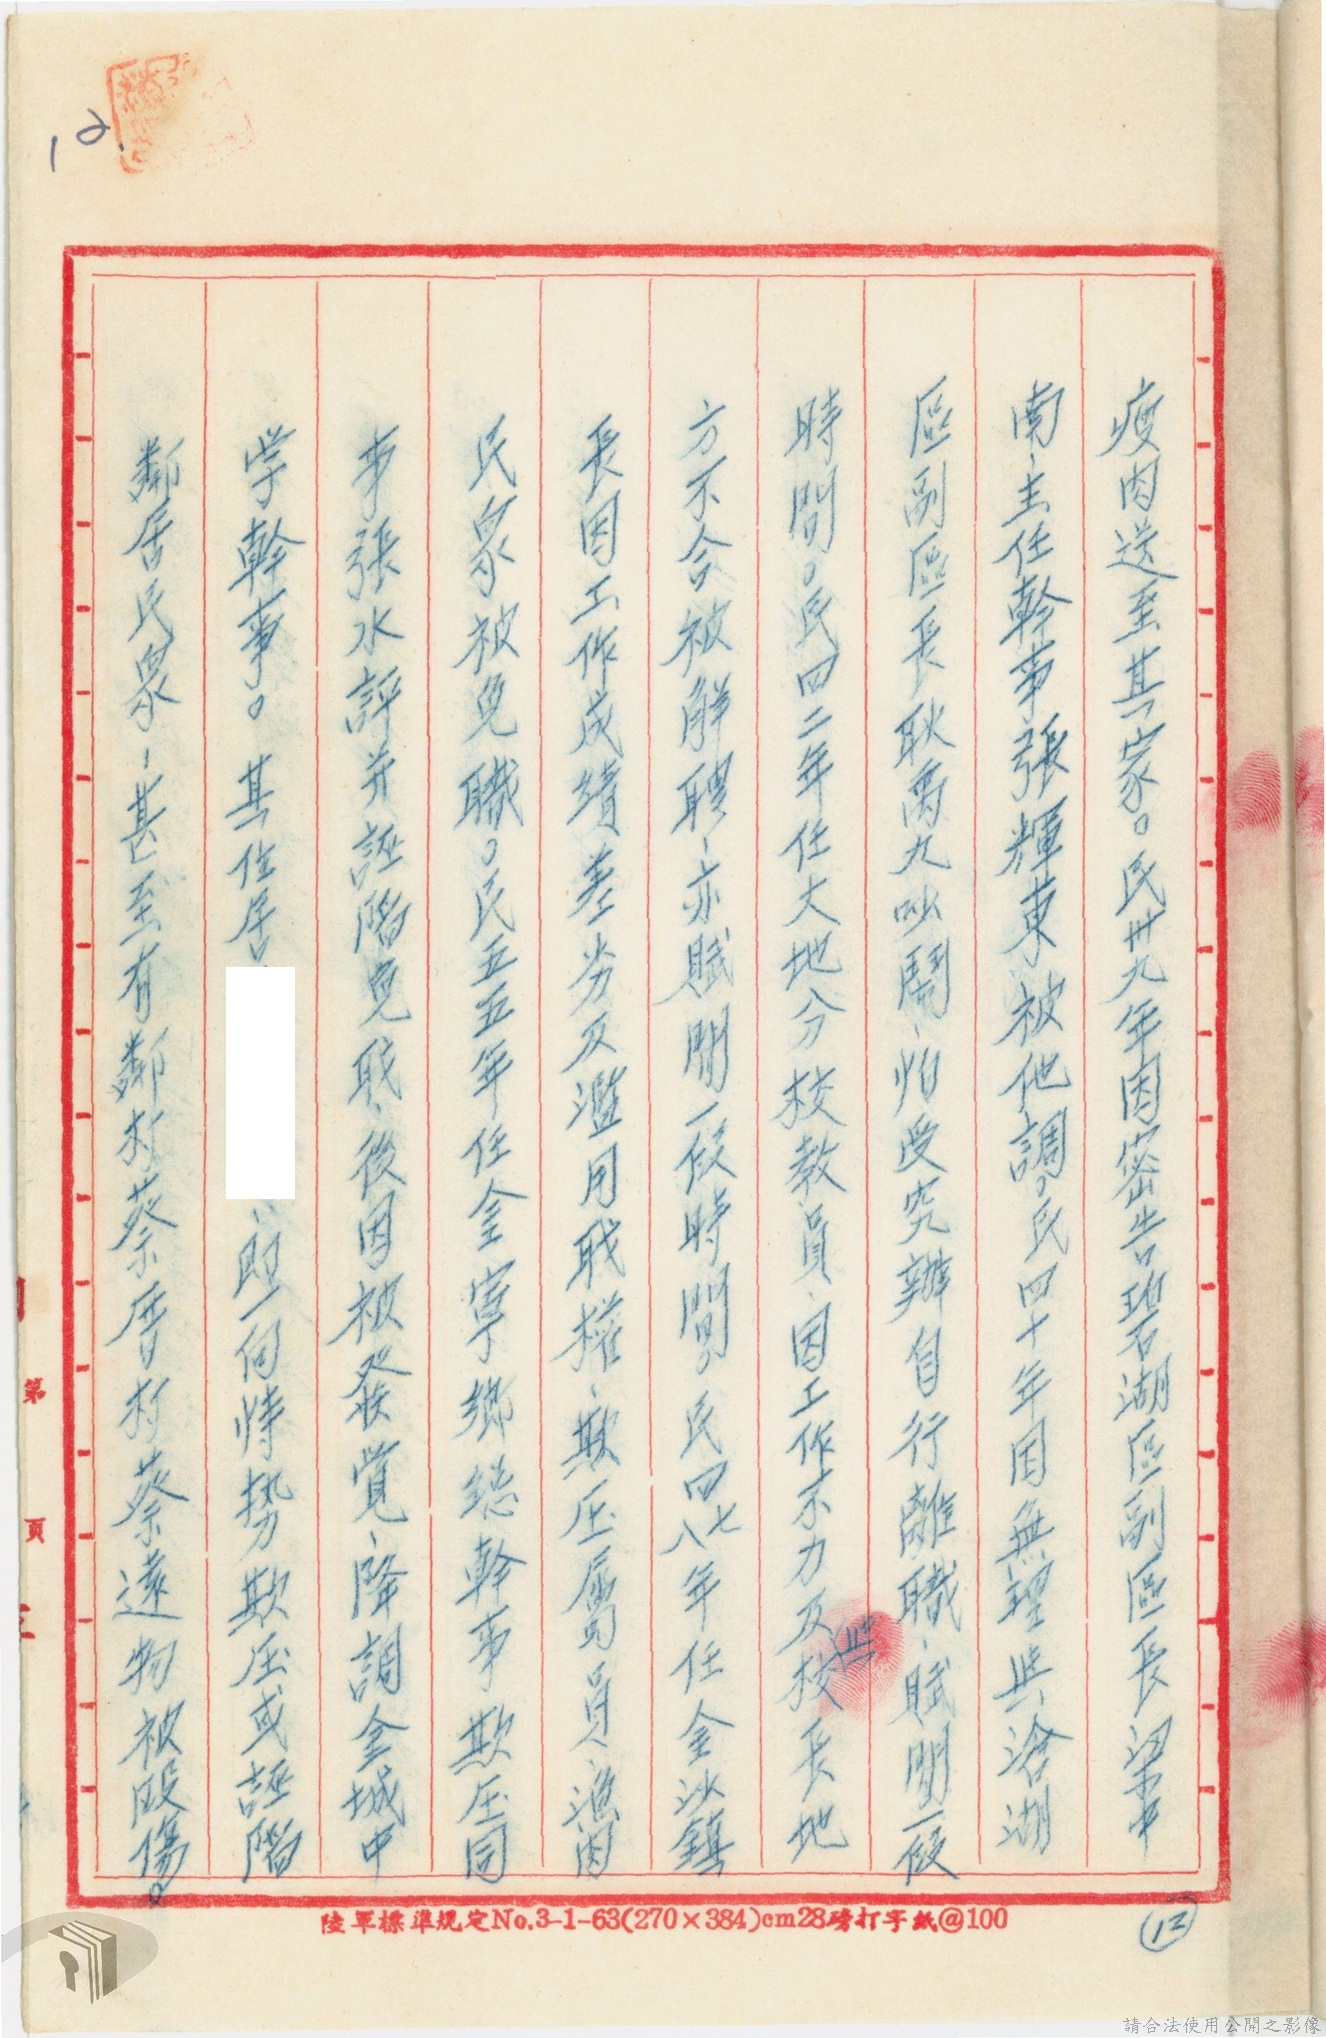 12.
疫肉送至其家。民卅九年因密告碧湖區副區長梁中
南、主任幹事張輝東被他調，民四十年因無理與滄湖
區副區長耿萬九吵鬧、怕受究辦自行離職、賦閒一段
時間。民四二年任大地分校教員、因工作不力及與校長地
方不合被解聘、亦賦閒一段時間，民四七八年任金沙鎮
長因工作成績差劣及濫用職權、欺压屬員、漁肉
民眾被免職。民五五年任金寧鄉總幹事欺压同
事張水評并誣陷免職、後因被發覺、降調金城中
学幹事。其住居
即一向恃势欺压或誣陷
鄰居民眾、甚至有鄰村蔡厝村蔡遠物被毆傷。
陸軍標準規定No.3-1-63(270×384)cm28磅打字紙@100
12
第 頁
請合法使用公開之影像